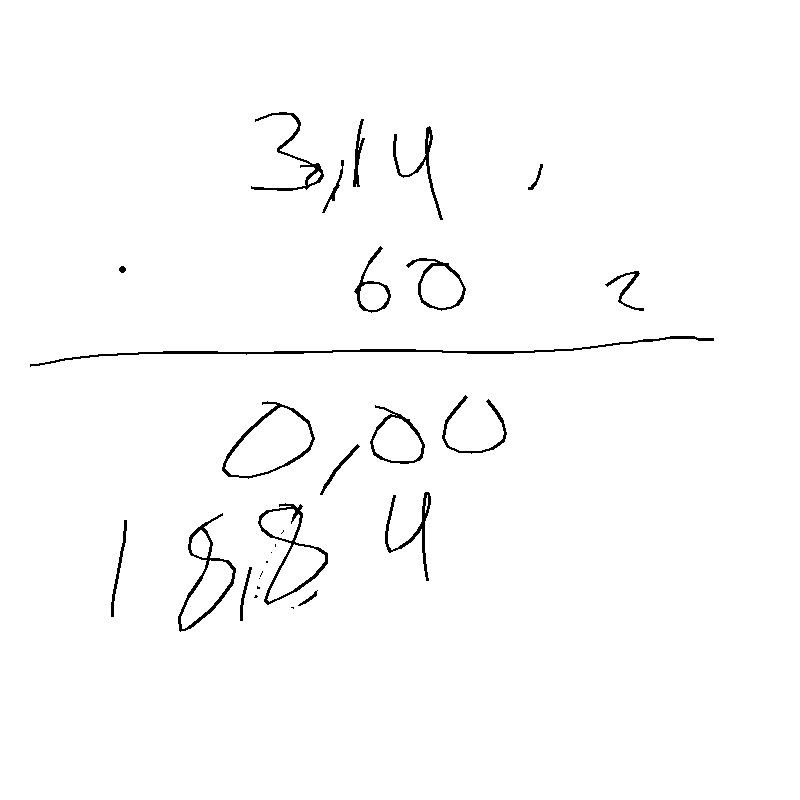 3,14 ,
. 60 2
0,00
18,84